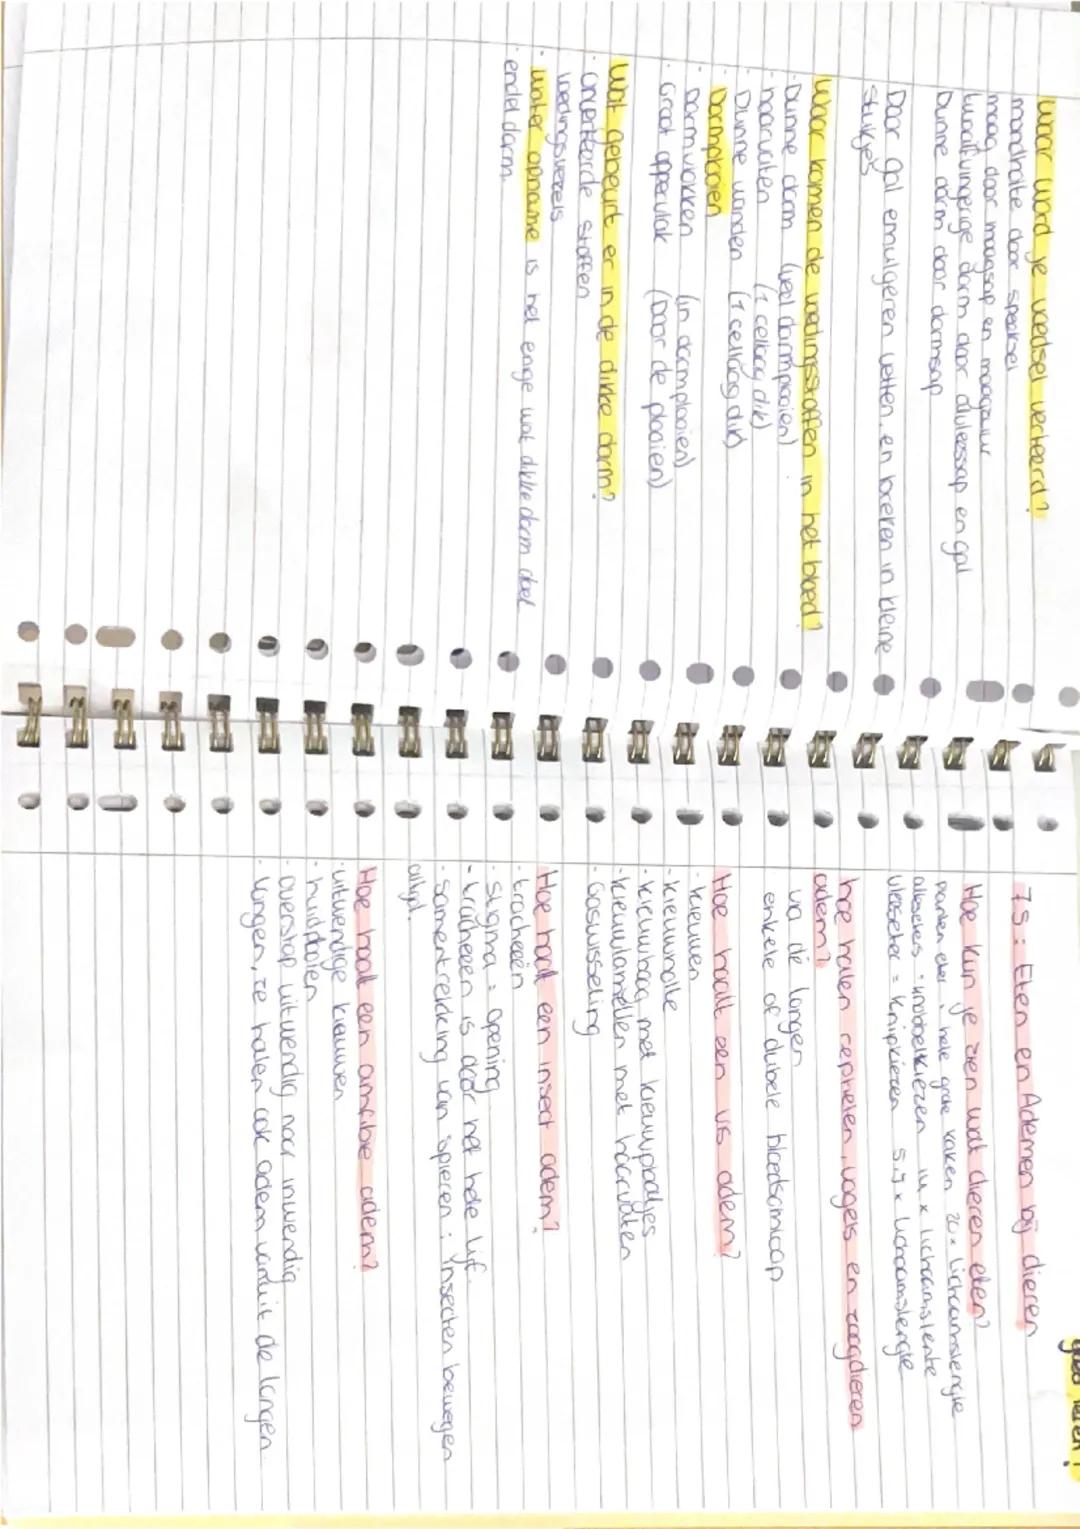 Waar word je voedsel verteerd?
mondholte door speeksel
maag door maagsap en maagzuur
twaalfvingerige darm door alvleessap en gal
Dunne darm door darmsap
Door gal emulgeren vetten, en breken in kleine
stukjes
Waar komen de voedingsstoffen in het bloed?
· Dunne darm (veel darmplooien)
· haarvaten (1 cellaag dik)
· Dunne wanden (1 cellaag dik)
Darmplooien
· Darmvlokken (in darmplooien)
· Groot oppervlak (Door de plooien)
Wat gebeurt er in de dikke darm?
· onverteerde stoffen
voedingsvezels
· water opname is het enige wat dikke darm doet
· endeldarm.
7.5: Eten en Ademen bij dieren
Hoe kun je zien wat dieren eten?
hele grote kaken 20x lichaamslengte
alleseters = knobbelkiezen x lichaamslente
vleeseter = Knipkiezen x lichaamslengte
hoe halen reptielen, vogels en zoogdieren
adem?
via de longen
enkele of dubele bloedsomloop
Hoe haalt een vis adem?
- kieuwen
- kieuwholte
- kieuwboog met kieuwplaatjes
- kieuwlamellen met haarvaten
- Gaswisseling
Hoe haalt een insect adem?
- tracheeën
- stigma = opening
- tracheeen is door het hele lijf.
- Samentrekking van spieren : Insecten bewegen
altijd.
Hoe haalt een amfibie adem?
· uitwendige kieuwen
· huidplooien
· overstap uitwendig naar inwendig
· longen, ze halen ook adem vanuit de longen.